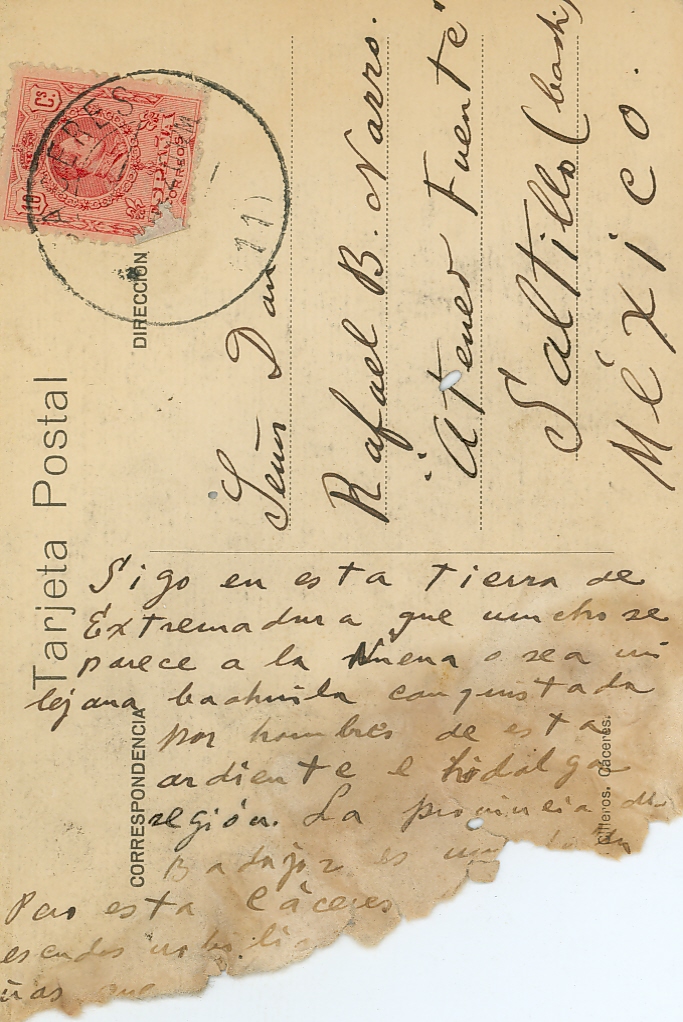 Tarjeta Postal
DIRECCIÓN
10 Cs.
ESPAÑA
CORREOS
CACERES
Señor Don
Rafael B. Narro.
"Ateneo Fuente"
Saltillo (Coah)
México.
CORRESPONDENCIA
Sigo en esta tierra de
Extremadura que mucho se
parece a la Nuena o sea mi
lejana Coahuila conquistada
por hombres de esta
ardiente e hidalga
región. La provincia de
Badajoz es
Pero esta Cáceres
escudos nobili
que
Cilleros. Cáceres.